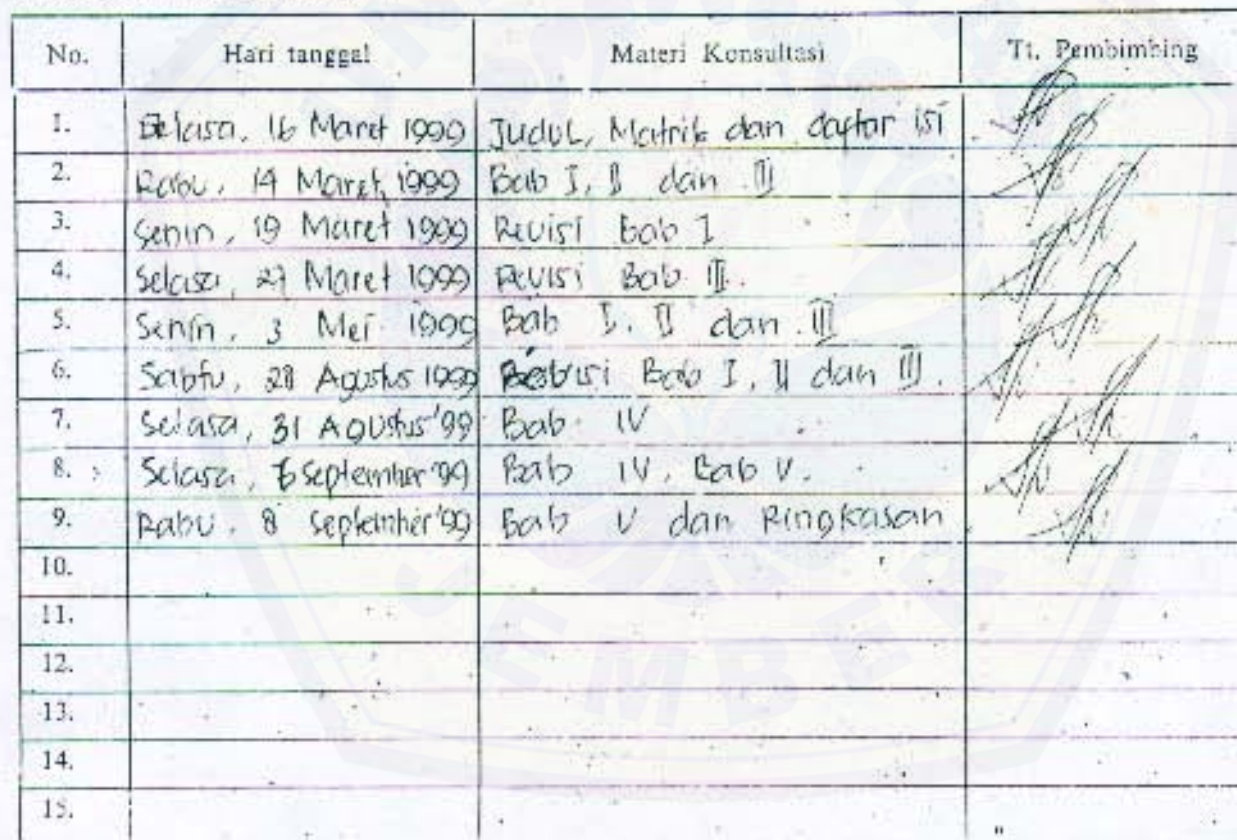 No. Hari tanggal Materi Konsultasi Tt. Pembimbing
1. Selasa, 16 Maret 1999 Judul, Matrik dan daftar isi
2. Rabu, 14 Maret, 1999 Bab I, II dan III
3. Senin, 19 Maret 1999 Revisi bab I
4. Selasa, 27 Maret 1999 Revisi Bab III.
5. Senin, 3 Mei 1999 Bab I, II dan III
6. Sabtu, 28 Agustus 1999 Bab I, II dan III.
7. Selasa, 31 Agustus '99 Bab IV
8. Selasa, September '99 Bab IV, Bab V.
9. Rabu, 8 September '99 Bab V dan Ringkasan
10.
11.
12.
13.
14.
15.
JEMBER